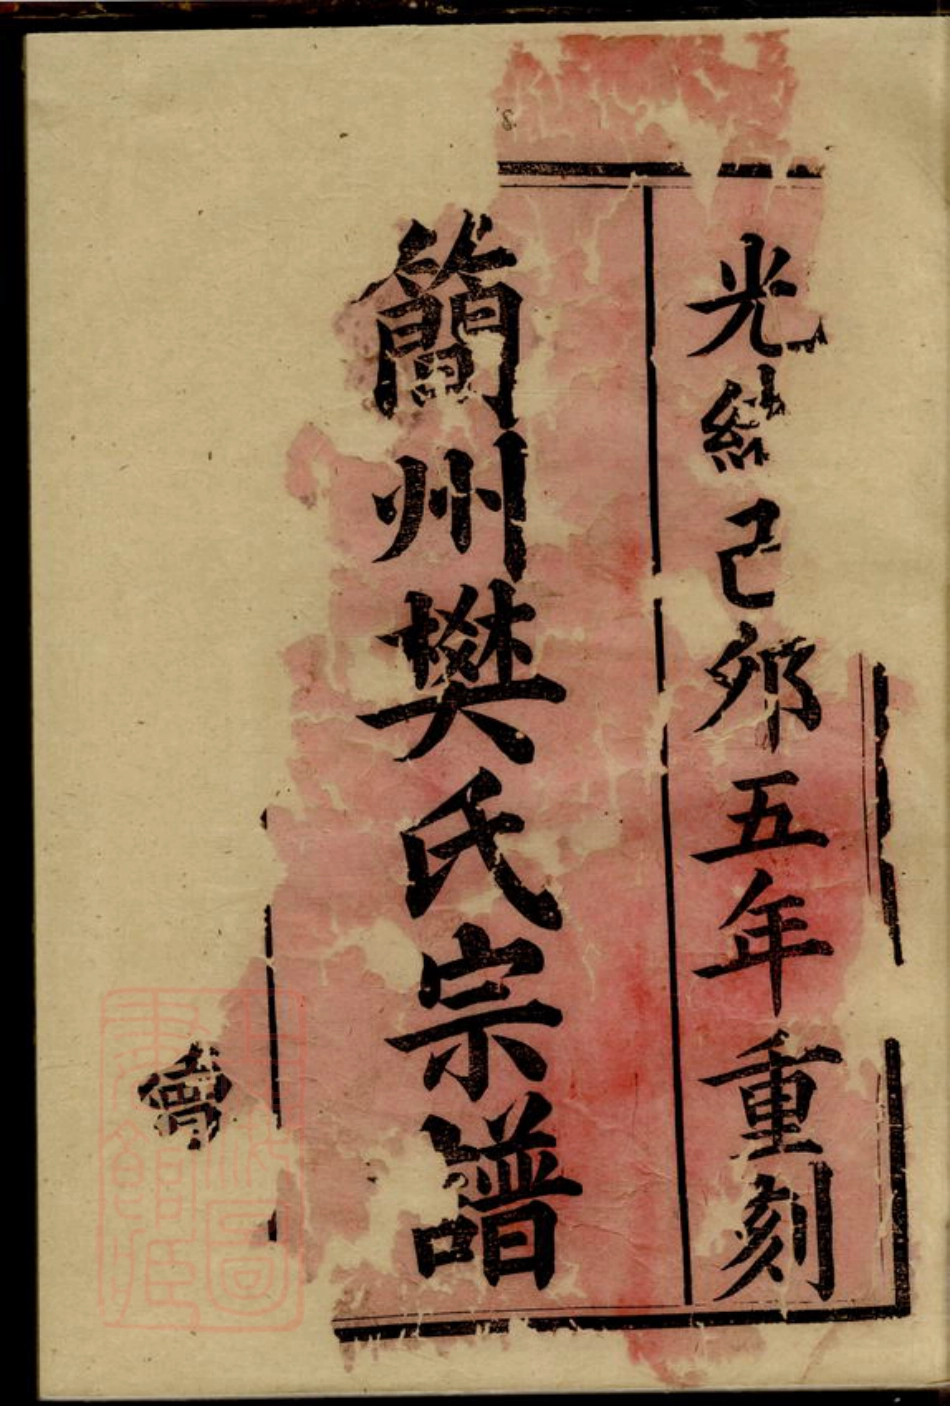 光緒己夘五年重刻
簡州樊氏宗譜
會